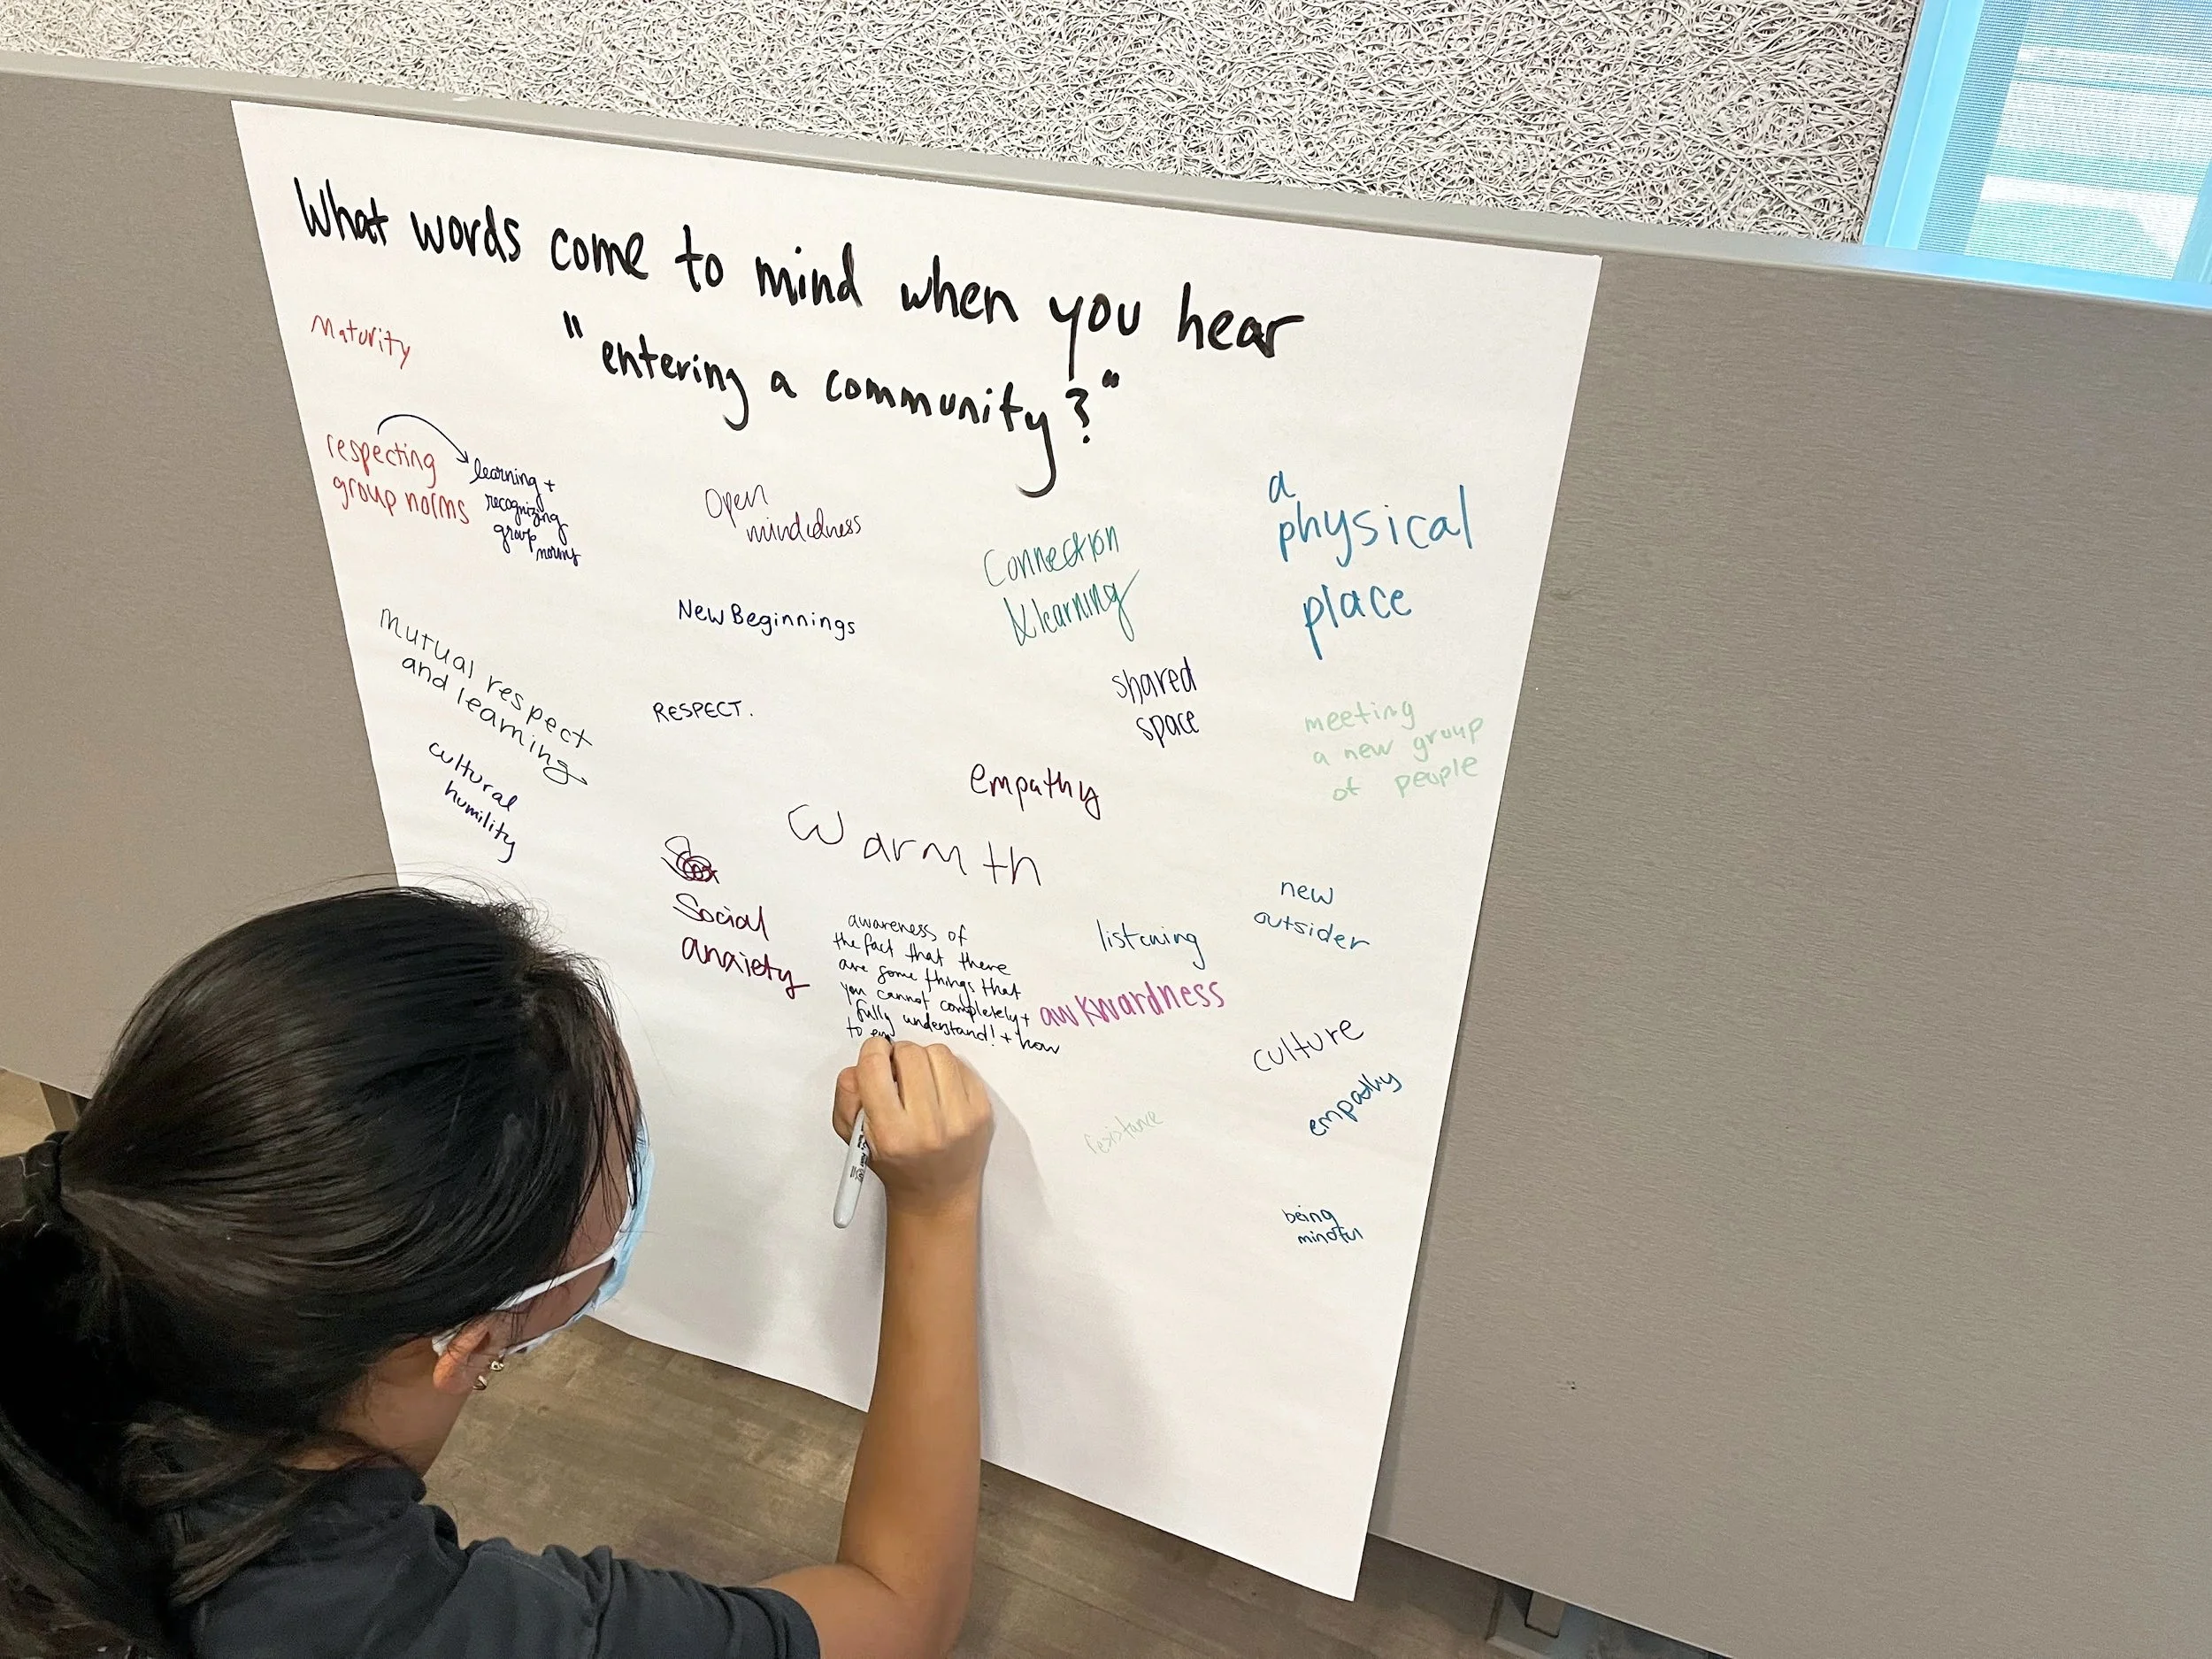 What words come to mind when you hear
"entering a community?"
Maturity
respecting
group norms
learning +
recognizing
group
norms
Open
mindedness
Connection
& learning
a
physical
place
New Beginnings
Mutual respect
and learning
RESPECT.
shared
space
meeting
a new group
of people
cultural
humility
empathy
Warmth
Social
anxiety
awareness of
the fact that there
are some things that
you cannot completely +
fully understand! + how
to
listening
new
outsider
awkwardness
culture
empathy
resistance
being
mindful